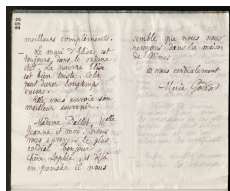 meilleurs compliments.
Le mari d'Alice est
toujours dans le même
état. La pauvre Alice
est bien triste. Cela
peut durer longtemps
encore.
Elle vous envoie son
meilleur souvenir.
Madame Dallet, Yvette
Jeanne et moi, nous
vous envoyons le plus
cordial bonjour
chère Sophie, et
en pensée il nous
semble que nous nous
revoyons dans la maison
de Nîmes.
à vous cordialement
Marie